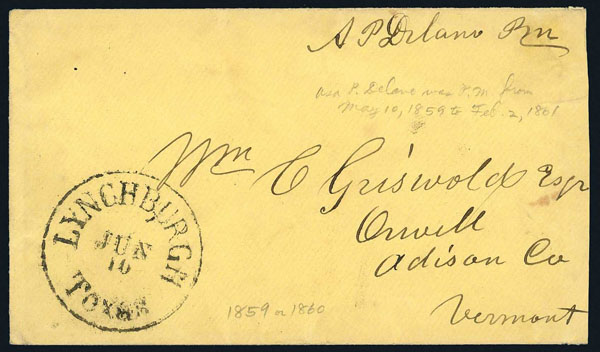 A P Delano Pm
Asa P. Delano was P.M. from
May 10, 1859 to Feb. 2, 1861
Wm C Griswold Esqr
Orwell
Adison Co
Vermont
LYNCHBURGH
JUN
10
TEXAS
1859 or 1860